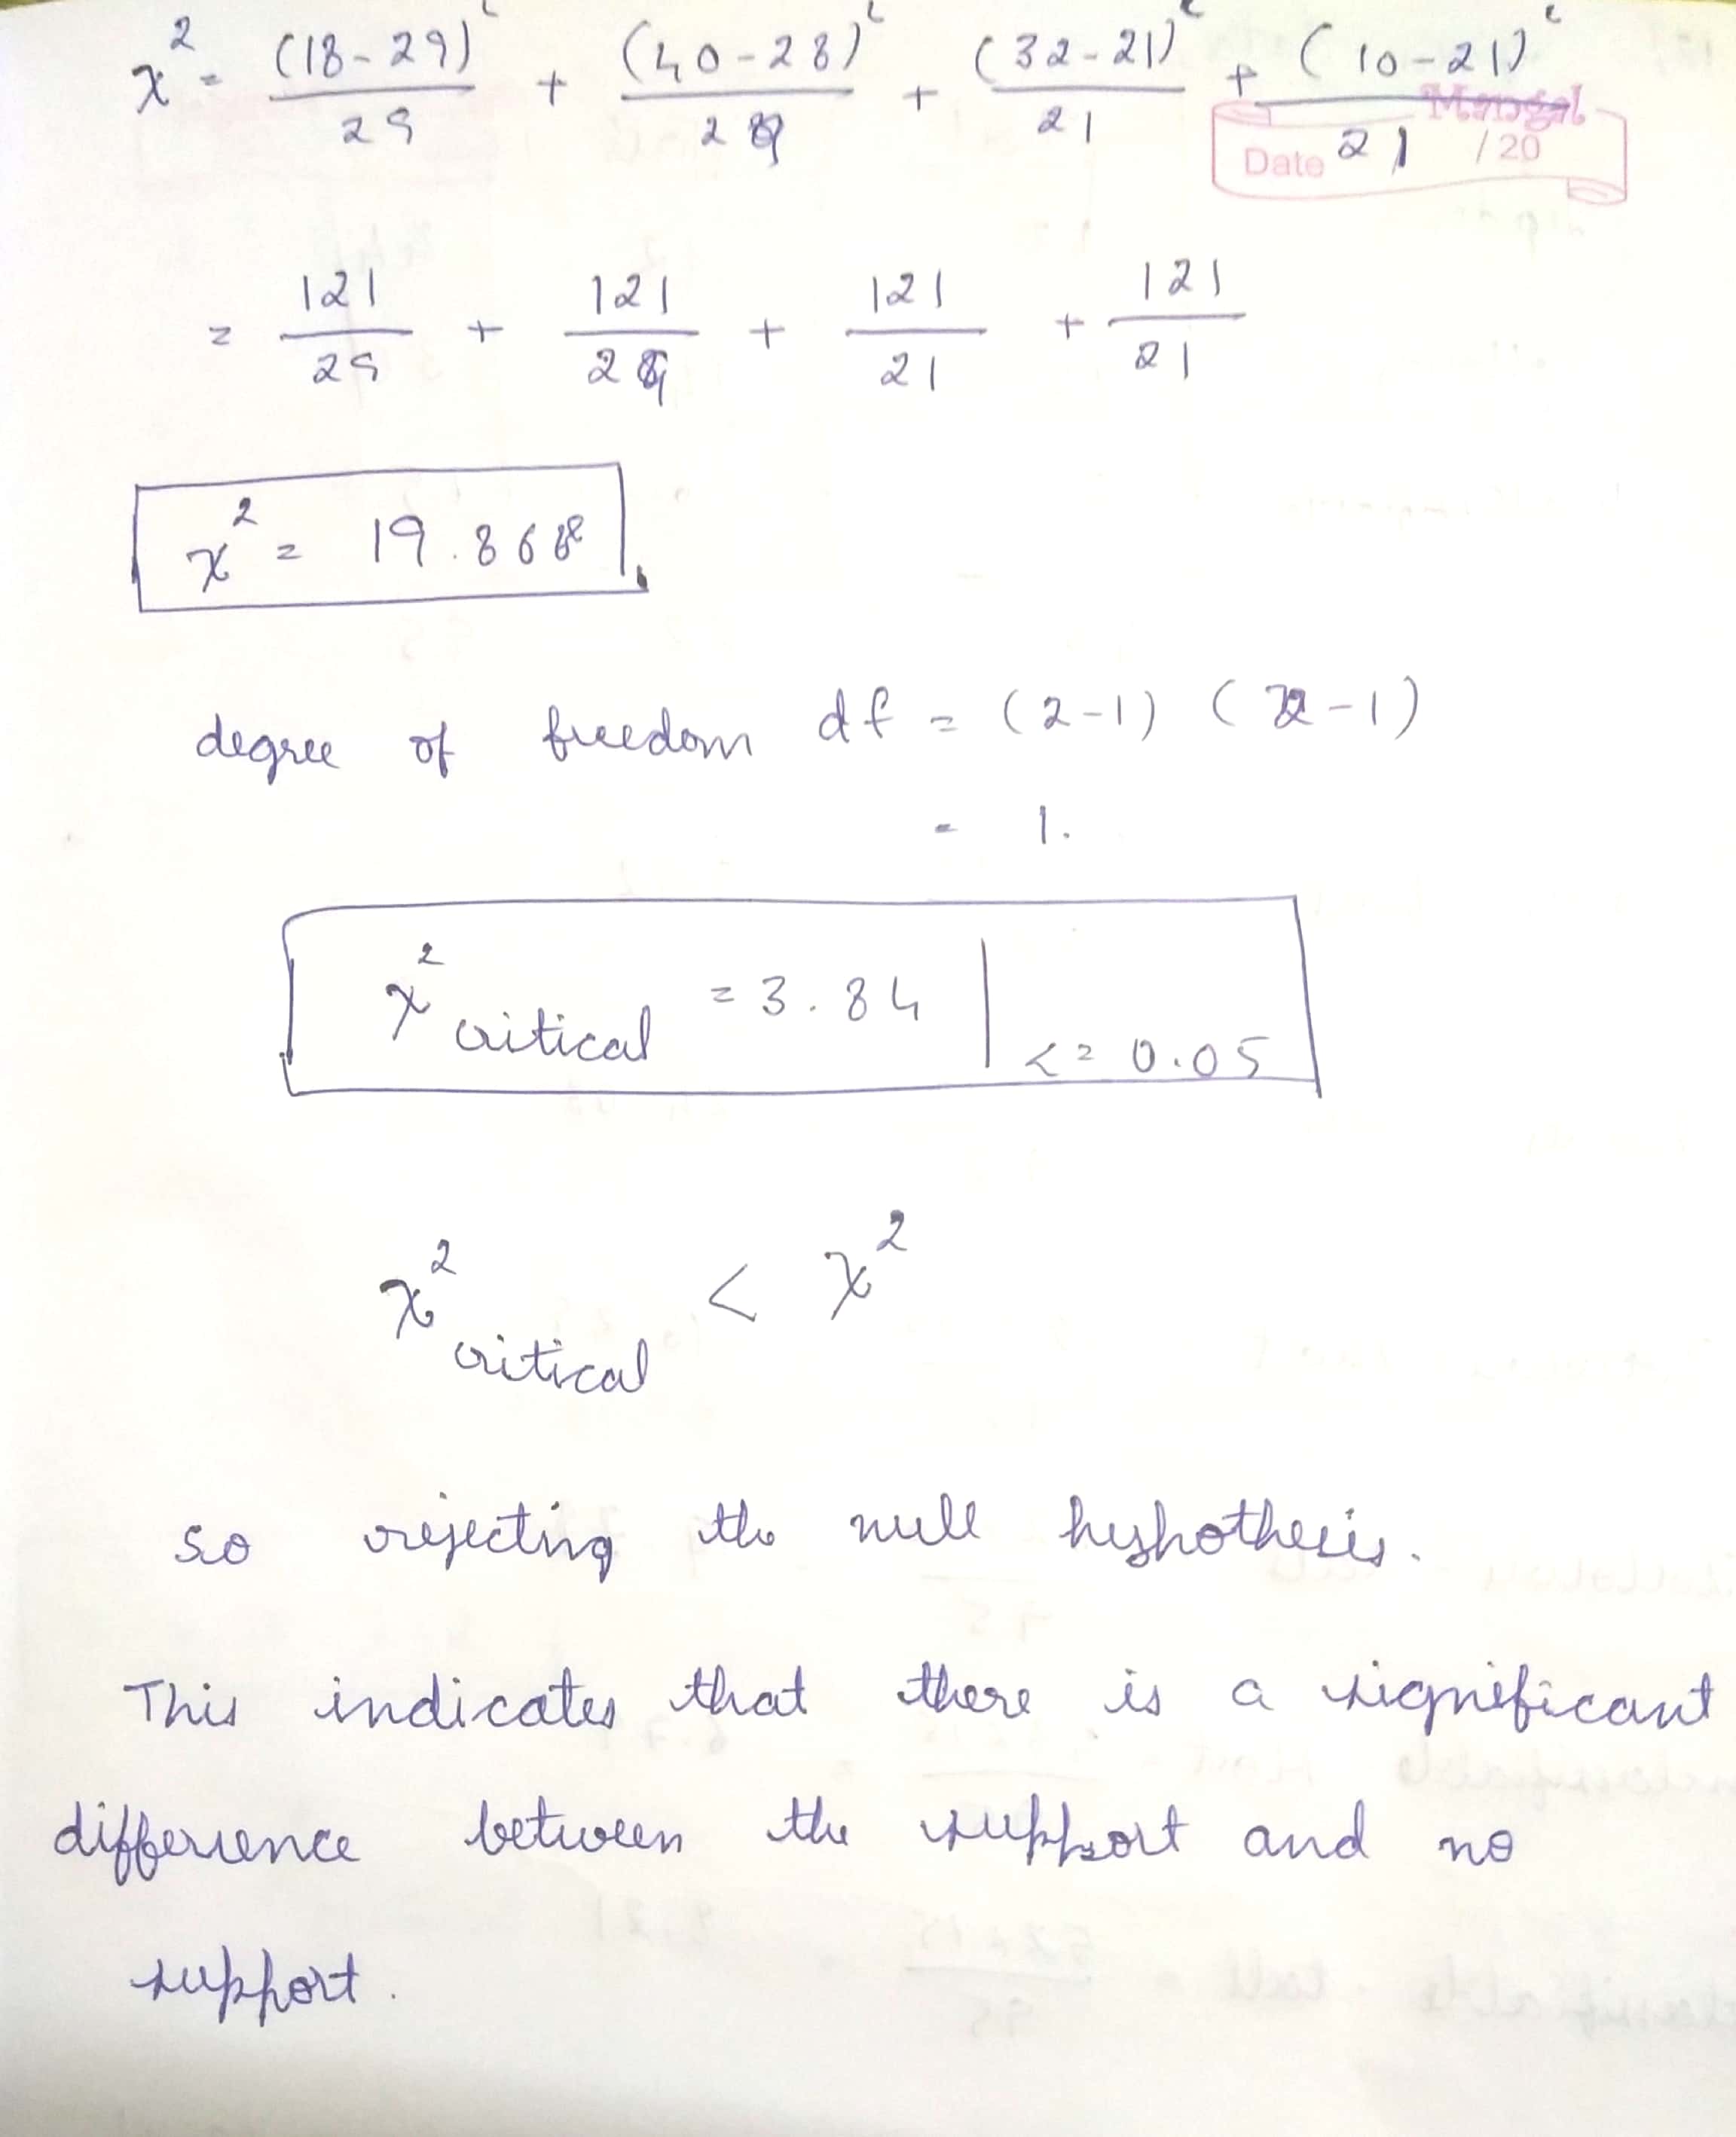 χ² = (18-29)²/29 + (40-28)²/29 + (32-21)²/21 + (10-21)²/21
Mangal
Date /20
= 121/29 + 121/29 + 121/21 + 121/21
χ² = 19.868
degree of freedom df = (2-1) (2-1)
= 1.
χ² critical = 3.84 | α = 0.05
χ² critical < χ²
so rejecting the null hypothesis.
This indicates that there is a significant
difference between the support and no
support.